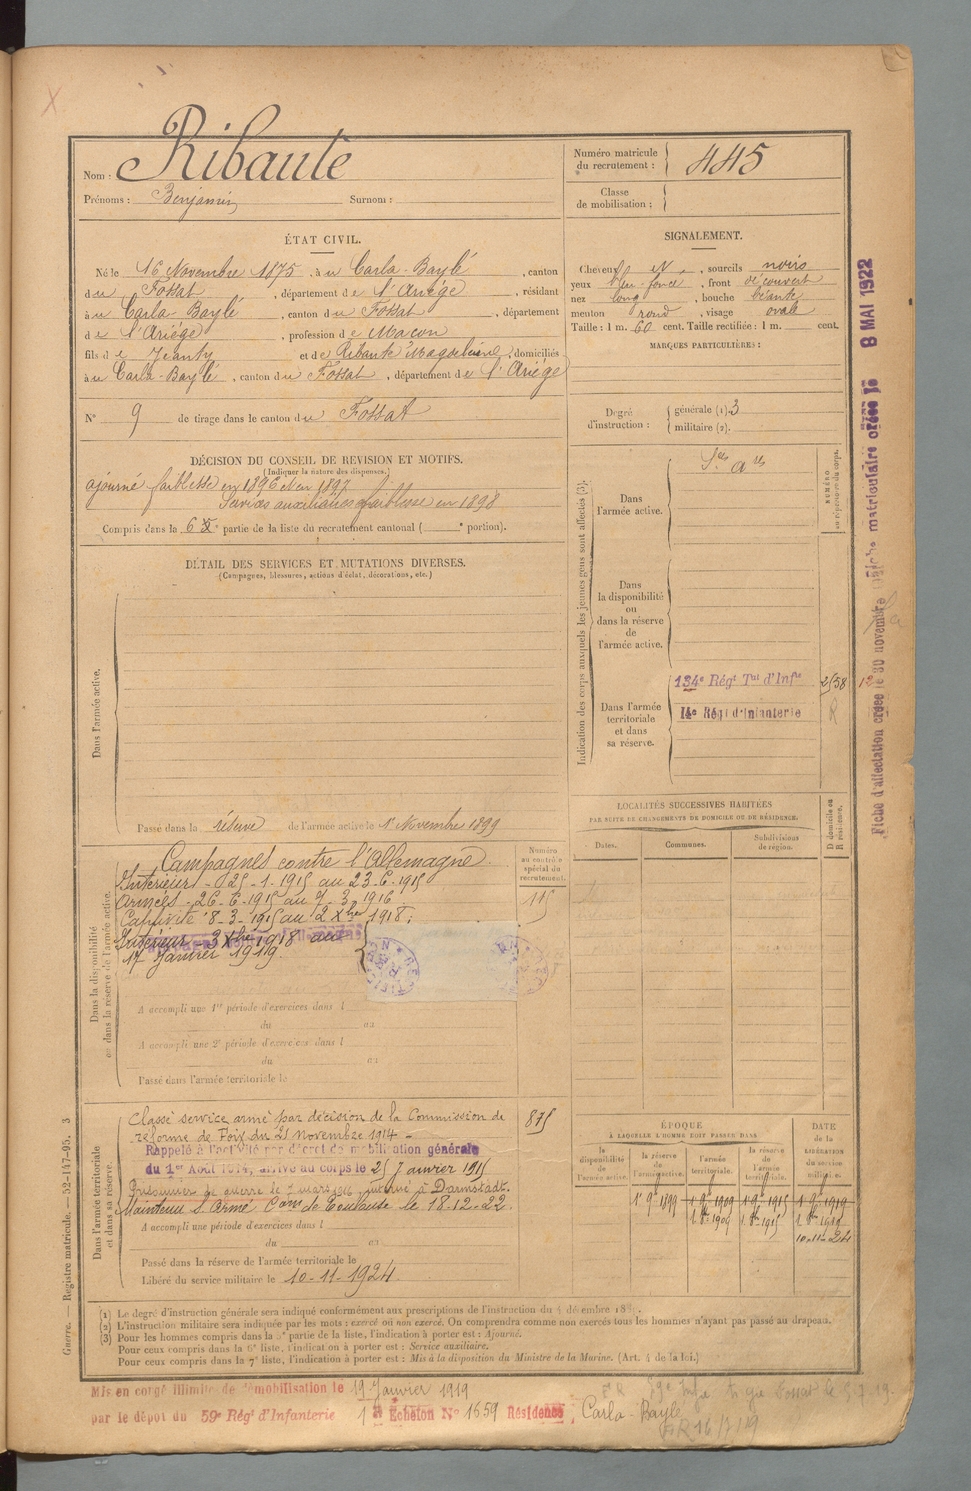 Nom : Ribaute
Prénoms : Benjamin Surnom :
Numéro matricule
du recrutement : 445
Classe
de mobilisation :
ÉTAT CIVIL.
Né le 16 Novembre 1875, à u Carla-Baylé, canton
du Fossat, département de l'Ariége, résidant
à u Carla Baylé, canton du Fossat, département
de l'Ariége, profession de Macon
fils de Jeanty et de Ribaute Magdeleine, domiciliés
à u Carla-Baylé, canton du Fossat, département de l'Ariége
N° 9 de tirage dans le canton du Fossat
SIGNALEMENT.
Cheveux N, sourcils noirs
yeux bleu foncé, front découvert
nez long, bouche béante
menton rond, visage ovale
Taille : 1 m. 60 cent. Taille rectifiée : 1 m. cent.
MARQUES PARTICULIÈRES :
Degré
d'instruction :
générale (1). 3
militaire (2).
DÉCISION DU CONSEIL DE REVISION ET MOTIFS.
(Indiquer la nature des dispenses.)
ajourné faiblesse en 1896 et en 1897
Services auxiliaires faiblesse en 1898
Compris dans la 6e partie de la liste du recrutement cantonal ( e portion).
DÉTAIL DES SERVICES ET MUTATIONS DIVERSES.
(Campagnes, blessures, actions d'éclat, décorations, etc.)
Dans l'armée active.
Passé dans la réserve de l'armée active le 1er Novembre 1899
Indication des corps auxquels les jeunes gens sont affectés (3).
NUMÉRO
au répertoire du corps.
Dans
l'armée active.
Ses Ares
Dans
la disponibilité
ou
dans la réserve
de
l'armée active.
Dans l'armée
territoriale
et dans
sa réserve.
134e Régt Tal d'Infie
14e Régt d'Infanterie
2/58
R
Fiche d'affectation créée le 30 novembre
Fiche matriculaire créée le 8 MAI 1922
LOCALITÉS SUCCESSIVES HABITÉES
PAR SUITE DE CHANGEMENTS DE DOMICILE OU DE RÉSIDENCE.
Dates.
Communes.
Subdivisions
de région.
D domicile ou
R résidence.
Dans la disponibilité
ou dans la réserve de l'armée active.
Numéro
au contrôle
spécial du
recrutement.
115
Campagnes contre l'Allemagne
Intérieur - 25-1-1915 au 23-6-1915
Armées - 26-6-1915 au 7-3-1916
Captivité 8-3-1915 au 2 Xbre 1918;
Intérieur - 3 Xbre 1918 au
17 Janvier 1919.
A accompli une 1re période d'exercices dans l
du au
A accompli une 2e période d'exercices dans l
du au
Passé dans l'armée territoriale le
Dans l'armée territoriale
et dans sa réserve.
Classé service armé par décision de la Commission de
réforme de Foix du 21 Novembre 1914 -
875
Rappelé à l'activité par décret de mobilisation générale
du 1er Août 1914, arrivé au corps le 25 Janvier 1915
Prisonnier de guerre le 7 mars 1916 interné à Darmstadt.
Maintenu S. Armé Com de Toulouse le 18-12-22.
A accompli une période d'exercices dans l
du au
Passé dans la réserve de l'armée territoriale le
Libéré du service militaire le 10-11-1924.
ÉPOQUE
À LAQUELLE L'HOMME DOIT PASSER DANS
la
disponibilité
de
l'armée
active.
la réserve
de
l'armée active.
l'armée
territoriale.
la réserve
de
l'armée
territoriale.
DATE
de la
LIBÉRATION
du service
militaire.
1er 9bre 1899
1 9bre 1909
1 9bre 1915
1 9bre 1919
1 8bre 1909
1 8bre 1915
1 8bre 1919
10-11-24
(1) Le degré d'instruction générale sera indiqué conformément aux prescriptions de l'instruction du 4 décembre 1889.
(2) L'instruction militaire sera indiquée par les mots : exercé ou non exercé. On comprendra comme non exercés tous les hommes n'ayant pas passé au drapeau.
(3) Pour les hommes compris dans la 5e partie de la liste, l'indication à porter est : Ajourné.
Pour ceux compris dans la 6e liste, l'indication à porter est : Service auxiliaire.
Pour ceux compris dans la 7e liste, l'indication à porter est : Mis à la disposition du Ministre de la Marine. (Art. 4 de la loi.)
Guerre. — Registre matricule. — 52-147-95. 3
Mis en congé illimité de démobilisation le 19 Janvier 1919
par le dépôt du 59e Régt d'Infanterie 1er Echelon N° 1659 Résidence, Carla-Baylé